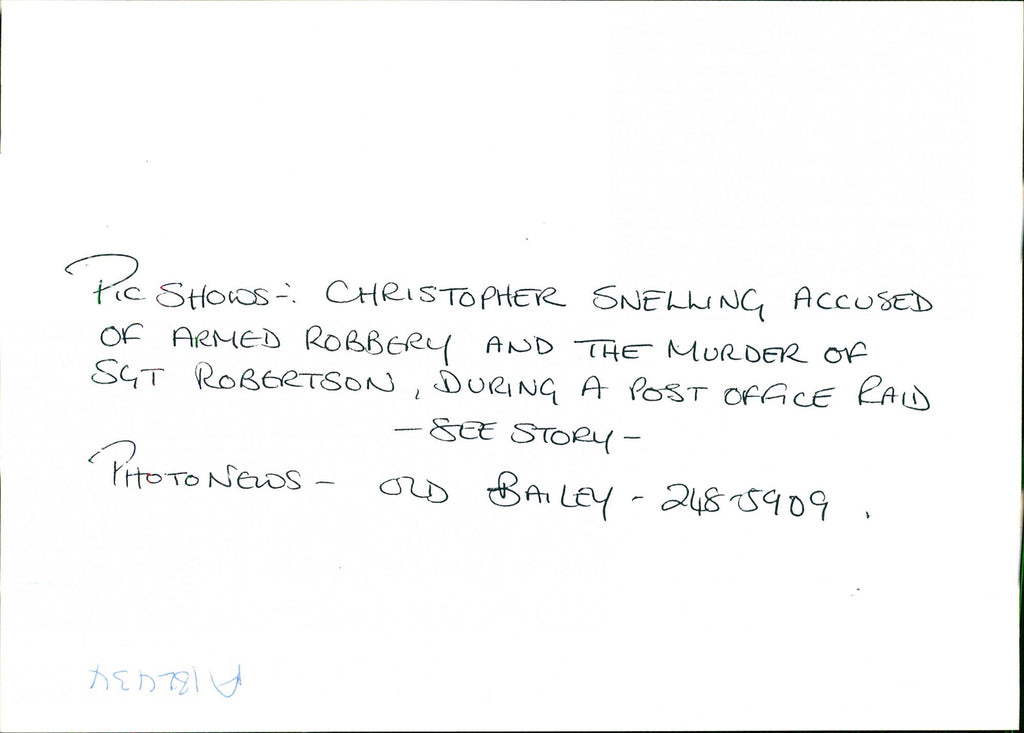 PIC SHOWS-: CHRISTOPHER SNELLING ACCUSED
OF ARMED ROBBERY AND THE MURDER OF
SGT ROBERTSON, DURING A POST OFFICE RAID
- SEE STORY -
PHOTONEWS - OLD BAILEY - 248-5909.